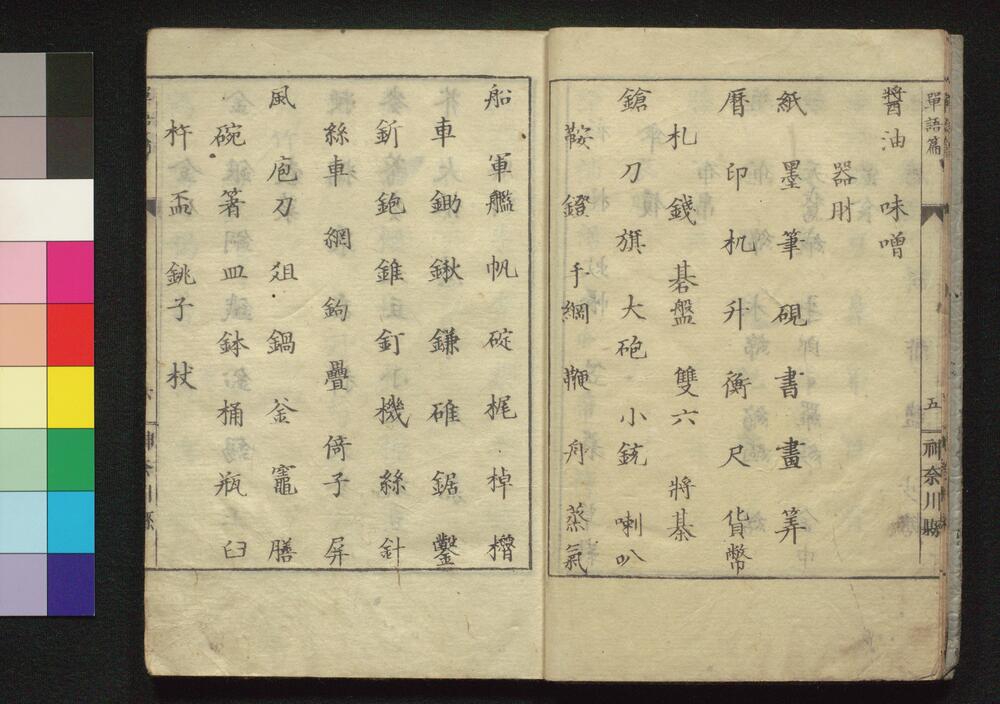 單語篇 五 神奈川縣
醬油 味噌
器財
紙 墨 筆 硯 書 畫 筭
曆 印 机 升 衡 尺 貨幣
札 錢 碁盤 雙六 將棊
鎗 刀 旗 大砲 小銃 喇叭
鞍 鐙 手綱 鞭 舟 蒸氣
船 軍艦 帆 碇 梶 棹 櫓
車 鋤 鍬 鎌 碓 鋸 鑿
釿 鉋 錐 釘 機 絲 針
絲車 網 鉤 疊 倚子 屏
風 庖刀 俎 鍋 釜 竈 膳
碗 箸 皿 鉢 桶 瓶 臼
杵 盃 銚子 杖